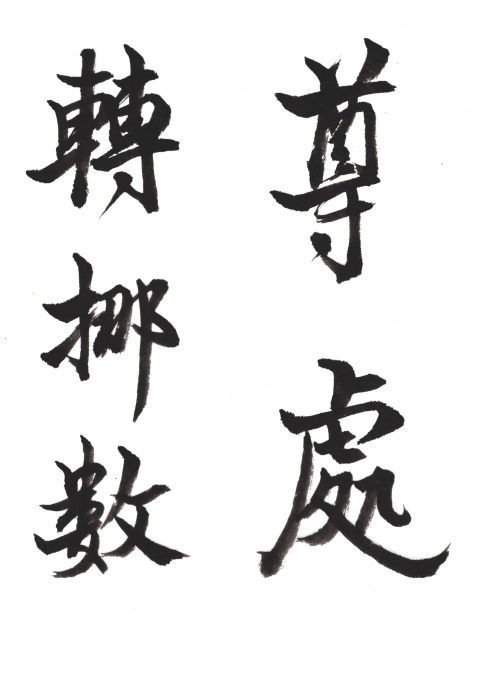 尊處
轉挪數